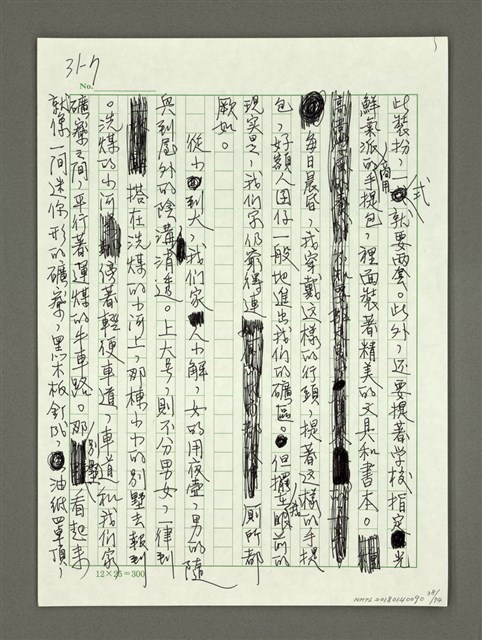 31-7
No.
此裝扮，一式就要兩套。此外，還要提著学校指定光
鮮氣派的手提包，裡面裝著精美的文具和書本。
每日晨昏，我穿戴这樣的行頭，提著这樣的手提
包，好額人囝仔一般地進出我们的礦區。但擺在眼前的
現实是，我们家仍窮得連廁所都
厥如。
從小到大，我们家人小解，女的用夜壺，男的隨
興到屋外的陰溝清造。上大号，則不分男女，一律到
搭在洗煤的小河上，那棟小小的別墅去報到
。洗煤的小河傍著輕便車道，車道和我们家
礦寮之間，平行著運煤的牛車路。那別墅看起來
就像一间迷你形的礦寮，黑木板釘成，油紙罩頂，
12×25=300
NMTL20180140090 28/74